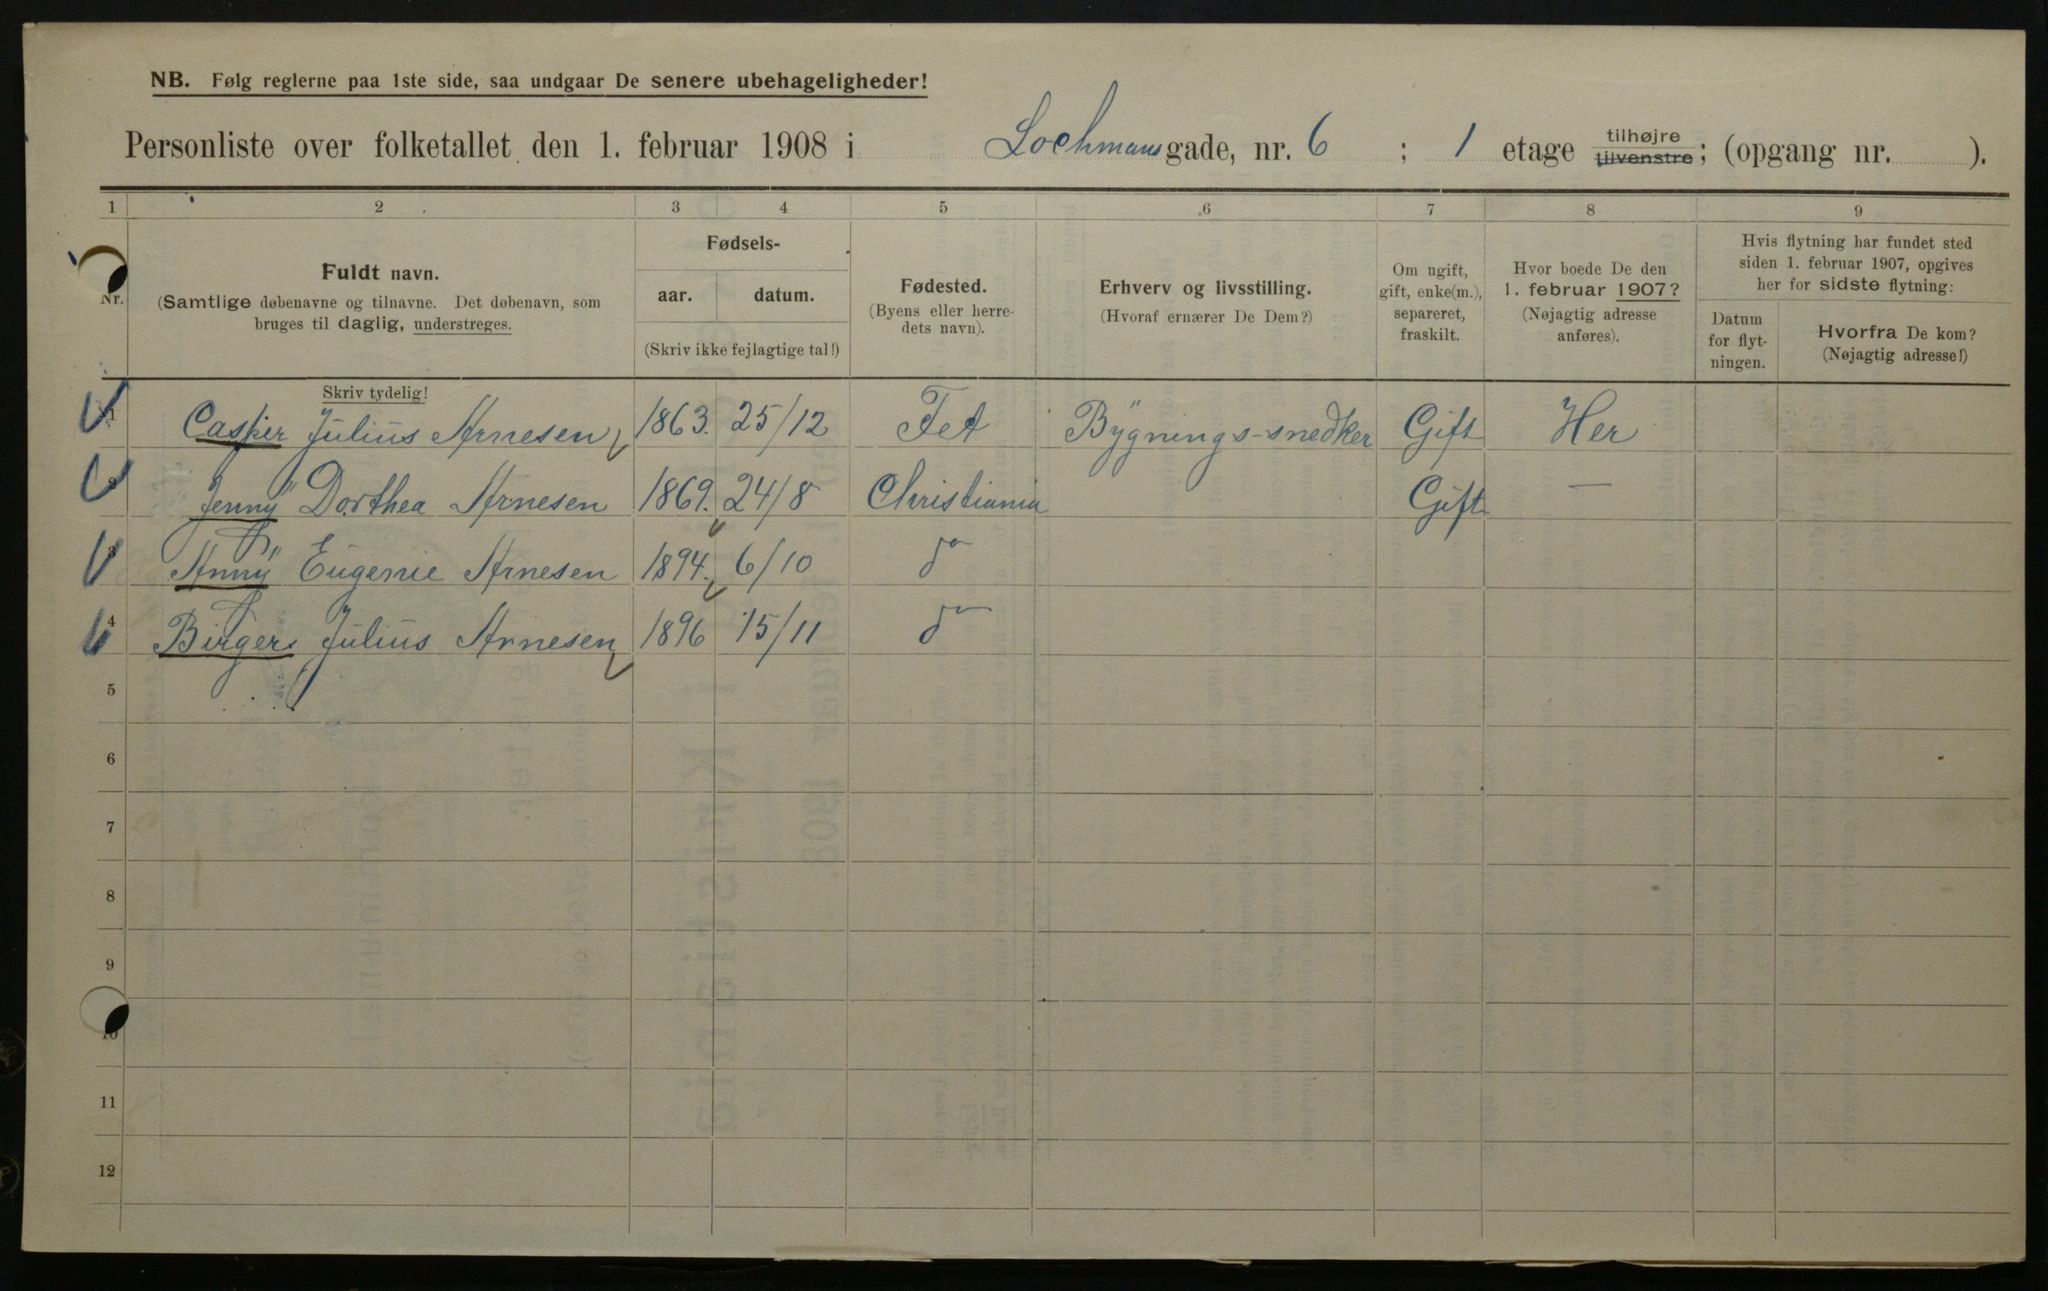 NB. Følg reglerne paa 1ste side, saa undgaar De senere ubehageligheder!
Personliste over folketallet den 1. februar 1908 i Lochmansgade, nr. 6 ; 1 etage tilhøjre tilvenstre; (opgang nr. ).
1 2 3 4 5 6 7 8 9
Nr.
Fuldt navn.
(Samtlige døbenavne og tilnavne. Det døbenavn, som
bruges til daglig, understreges.
Fødsels-
aar. datum.
(Skriv ikke fejlagtige tal!)
Fødested.
(Byens eller herre-
dets navn).
Erhverv og livsstilling.
(Hvoraf ernærer De Dem?)
Om ugift,
gift, enke(m.),
separeret,
fraskilt.
Hvor boede De den
1. februar 1907?
(Nøjagtig adresse
anføres).
Hvis flytning har fundet sted
siden 1. februar 1907, opgives
her for sidste flytning:
Datum
for flyt-
ningen.
Hvorfra De kom?
(Nøjagtig adresse!)
Skriv tydelig!
1 Casper Julius Arnesen 1863. 25/12 Fet Bygnings-snedker Gift Her
2 Jenny Dorthea Arnesen 1869. 24/8 Christiania Gift —
3 Anny Eugenie Arnesen 1894. 6/10 do
4 Birger Julius Arnesen 1896 15/11 do
5
6
7
8
9
10
11
12